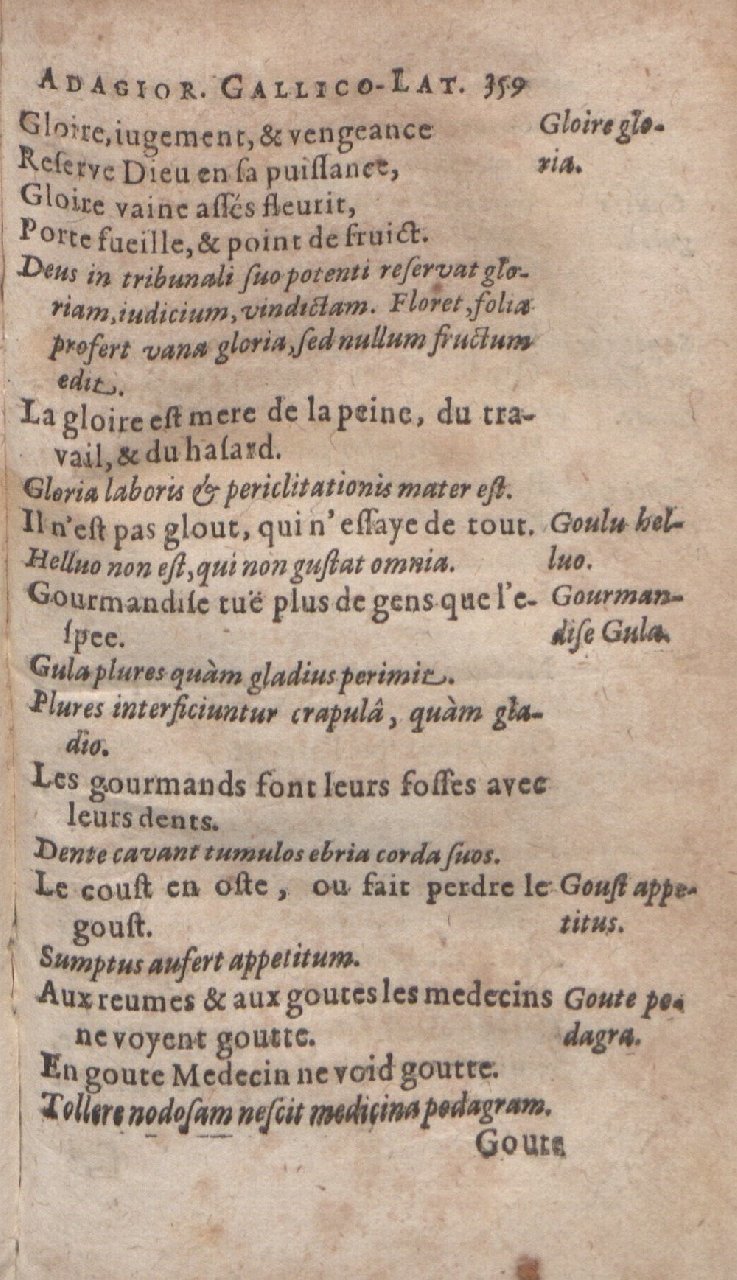 ADAGIOR. GALLICO-LAT. 359
Gloire, iugement, & vengeance
Gloire glo-
Reſerve Dieu en ſa puiſſance,
ria.
Gloire vaine aſſés fleurit,
Porte fueille, & point de fruict.
Deus in tribunali ſuo potenti reſervat glo-
riam, iudicium, vindictam. Floret, folia
profert vana gloria, ſed nullum fructum
edit.
La gloire eſt mere de la peine, du tra-
vail, & du haſard.
Gloria laboris & periclitationis mater eſt.
Il n'eſt pas glout, qui n'eſſaye de tout.
Goulu hel-
Helluo non eſt, qui non guſtat omnia.
luo.
Gourmandiſe tuë plus de gens que l'e-
Gourman-
ſpee.
diſe Gula.
Gula plures quàm gladius perimit.
Plures interficiuntur crapulâ, quàm gla-
dio.
Les gourmands font leurs foſſes avec
leurs dents.
Dente cavant tumulos ebria corda ſuos.
Le couſt en oſte, ou fait perdre le
Gouſt appe-
gouſt.
titus.
Sumptus aufert appetitum.
Aux reumes & aux goutes les medecins
Goute po-
ne voyent goutte.
dagra.
En goute Medecin ne void goutte.
Tollere nodoſam neſcit medicina podagram.
Goute